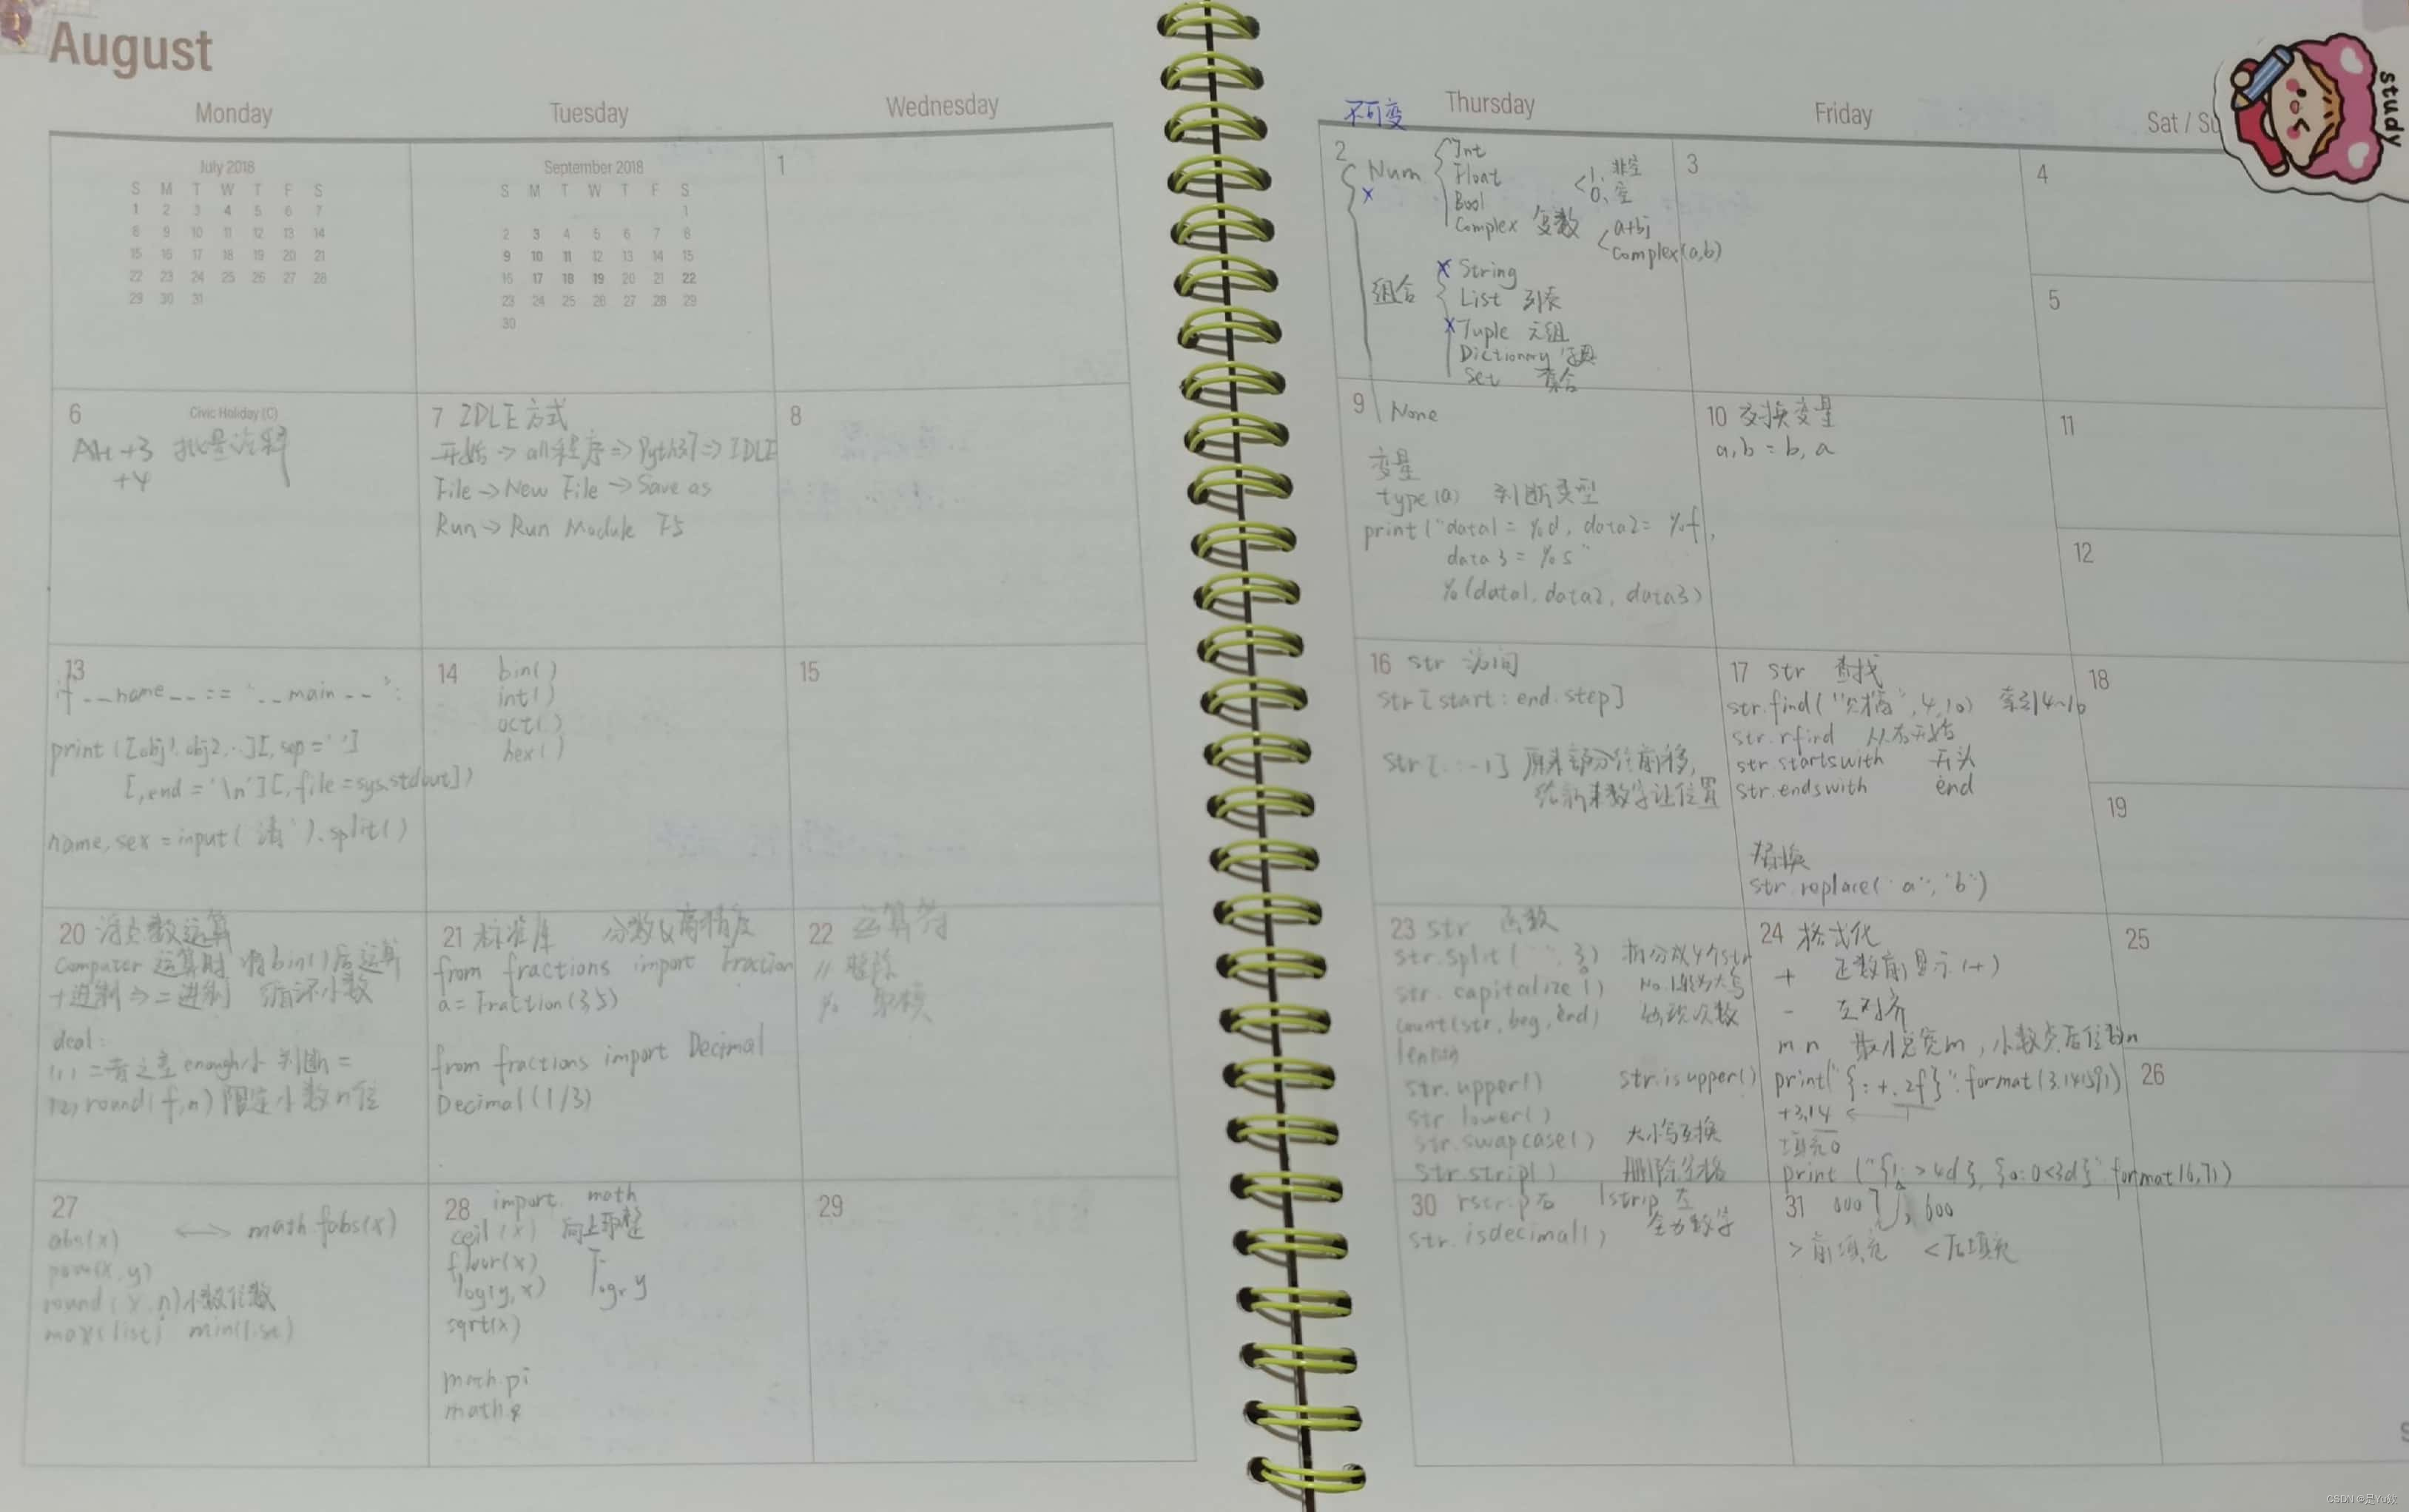 August
Monday
Tuesday
Wednesday
不可变
Thursday
Friday
Sat / Su
study
July 2018
S M T W T F S
1 2 3 4 5 6 7
8 9 10 11 12 13 14
15 16 17 18 19 20 21
22 23 24 25 26 27 28
29 30 31
September 2018
S M T W T F S
1
2 3 4 5 6 7 8
9 10 11 12 13 14 15
16 17 18 19 20 21 22
23 24 25 26 27 28 29
30
1
2
Num
x
Int
Float
Bool
Complex 复数
1, 非空
0, 空
a+bj
complex(a,b)
组合
x String
List 列表
x Tuple 元组
Dictionary 字典
Set 集合
3
4
5
6 Civic Holiday (C)
Alt +3 批量注释
+4
7 IDLE 方式
开始 → all程序 ⇒ Python37 ⇒ IDLE
File → New File → Save as
Run → Run Module F5
8
9 None
变量
type(a) 判断类型
print("data1 = %d, data2 = %f,
data3 = %s"
%(data1, data2, data3)
10 交换变量
a, b = b, a
11
12
13
if __name__ == "__main__":
print([obj1, obj2, ..][, sep=' ']
[, end = '\n'][, file=sys.stdout])
name, sex = input('请').split()
14 bin()
int()
oct()
hex()
15
16 str 访问
str[start: end: step]
str[: : -1] 原来部分往前移,
给新来数字让位置
17 str 查找
str.find(" ", 4, 10) 索引4~10
str.rfind 从右开始
str.startswith 开头
str.endswith end
替换
str.replace("a", "b")
18
19
20 浮点数运算
Computer 运算时 将bin()后运算
十进制 ⇒ 二进制 循环小数
deal:
(1) 二者之差enough小 判断 =
(2) round(f,n) 限定小数n位
21 标准库 分数&高精度
from fractions import Fraction
a = Fraction(3,5)
from fractions import Decimal
Decimal(1/3)
22 运算符
// 整除
%
23 str 函数
str.split(" ", 3) 拆分成4个str
str.capitalize() No.1转为大写
count(str, beg, end) 出现次数
str.upper() str.isupper()
str lower()
str.swapcase() 大小写互换
str.strip() 删除空格
24 格式化
+ 正数前显示(+)
- 左对齐
m n 最小总宽m, 小数点后位数n
print("{:+.2f}".format(3.141591)
+3.14 ←
填充0
print ("{1: > 4d}, {0: 0<3d}" format(6,71)
25
26
27
abs(x) ↔ math.fabs(x)
pow(x, y)
round(x, n) 小数位数
max(list) min(list)
28 import math
ceil(x) 向上取整
floor(x) 下
log(y, x) logx y
sqrt(x)
math.pi
math.e
29
30 rstrip右 lstrip 左
str.isdecimal() 全为数字
31 0071, 600
> 前填充 < 后填充
CSDN @是Yu欸